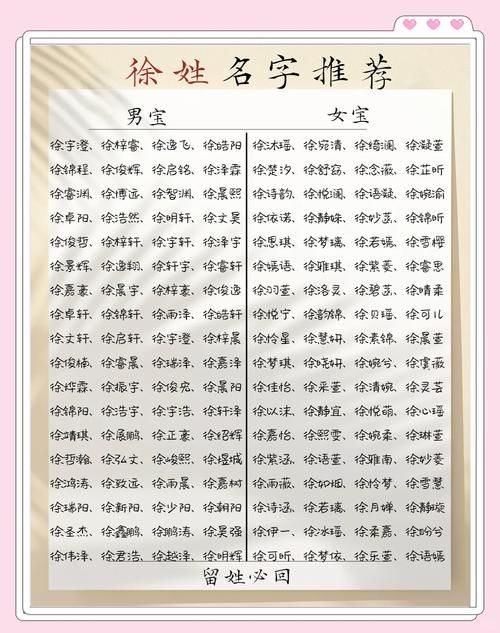 徐姓名字推荐
男宝
女宝
徐宇澄、徐梓睿、徐逸飞、徐皓阳
徐锦程、徐俊辉、徐启铭、徐泽霖
徐睿渊、徐博远、徐智渊、徐晨熙
徐卓阳、徐浩然、徐明轩、徐文昊
徐俊哲、徐梓轩、徐宇轩、徐泽宇
徐景辉、徐逸翔、徐轩宇、徐睿轩
徐嘉豪、徐晨宇、徐梓豪、徐俊逸
徐卓轩、徐锦轩、徐雨泽、徐皓轩
徐文轩、徐启轩、徐宇澄、徐梓晨
徐俊楠、徐睿晨、徐瑞泽、徐嘉泽
徐烨霖、徐振宇、徐俊宏、徐晨阳
徐锦阳、徐浩宇、徐宇浩、徐轩泽
徐靖琪、徐展鹏、徐正豪、徐绍辉
徐哲瀚、徐弘文、徐峻熙、徐煜城
徐鸿涛、徐致远、徐雨晨、徐嘉树
徐瑞阳、徐新阳、徐少阳、徐朝阳
徐圣杰、徐鑫鹏、徐鹏涛、徐昊强
徐伟泽、徐君浩、徐越泽、徐明辉
徐沐瑶、徐宛清、徐绮澜、徐凝萱
徐楚汐、徐舒窈、徐念薇、徐芷昕
徐诗韵、徐悦澜、徐语凝、徐婉渝
徐依诺、徐静姝、徐妙菡、徐锦昕
徐思琪、徐梦瑶、徐若嫣、徐雪樱
徐嫣语、徐雅琪、徐紫菱、徐睿思
徐羽萱、徐洛灵、徐碧菡、徐晴柔
徐悦宁、徐韵锦、徐贝瑶、徐可儿
徐怜星、徐慧妍、徐素锦、徐晨萱
徐梦琪、徐晓妍、徐婉兮、徐虞薇
徐佳怡、徐采萱、徐清婉、徐灵芸
徐以沫、徐静宜、徐悦萌、徐心瑶
徐嘉怡、徐熙雯、徐婉柔、徐琳萱
徐紫涵、徐语萱、徐雅南、徐妙菱
徐雨薇、徐如烟、徐怜梦、徐雪慧
徐诗涵、徐若瑶、徐月婵、徐静璇
徐伊一、徐冰瑶、徐柔嘉、徐盼兮
徐可昕、徐梦依、徐乐萱、徐语嫣
留姓必回